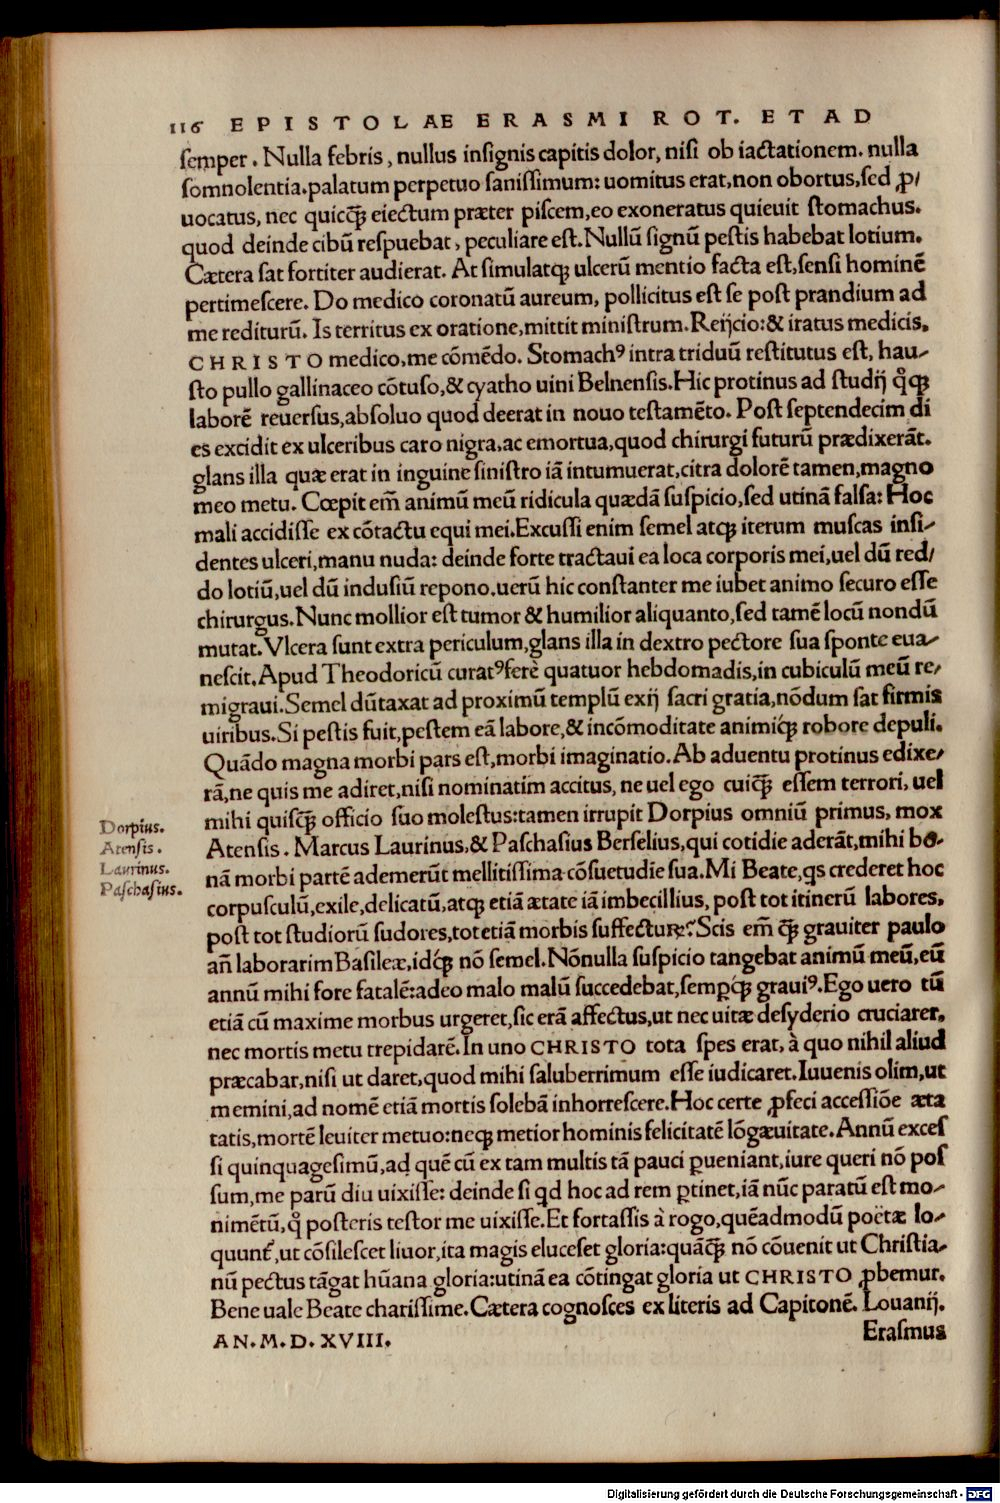 116 EPISTOLAE ERASMI ROT. ET AD
semper. Nulla febris, nullus insignis capitis dolor, nisi ob iactationem. nulla
somnolentia. palatum perpetuo sanissimum: uomitus erat, non obortus, sed ꝓ/
uocatus, nec quicꝗ̃ eiectum præter piscem, eo exoneratus quieuit stomachus.
quod deinde cibũ respuebat, peculiare est. Nullũ signũ pestis habebat lotium.
Cætera sat fortiter audierat. At simulatꝗ ulcerũ mentio facta est, sensi hominẽ
pertimescere. Do medico coronatũ aureum, pollicitus est se post prandium ad
me rediturũ. Is territus ex oratione, mittit ministrum. Reijcio: & iratus medicis,
CHRISTO medico, me cõmẽdo. Stomachꝰ intra triduũ restitutus est, hau-
sto pullo gallinaceo cõtuso, & cyatho uini Belnensis. Hic protinus ad studij q̊ꝗ
laborẽ reuersus, absoluo quod deerat in nouo testamẽto. Post septendecim di
es excidit ex ulceribus caro nigra, ac emortua, quod chirurgi futurũ prædixerãt.
glans illa quæ erat in inguine sinistro iã intumuerat, citra dolorẽ tamen, magno
meo metu. Cœpit em̃ animũ meũ ridicula quædã suspicio, sed utinã falsa: Hoc
mali accidisse ex cõtactu equi mei. Excussi enim semel atꝗ iterum muscas insi-
dentes ulceri, manu nuda: deinde forte tractaui ea loca corporis mei, uel dũ red/
do lotiũ, uel dũ indusiũ repono. uerũ hic constanter me iubet animo securo esse
chirurgus. Nunc mollior est tumor & humilior aliquanto, sed tamẽ locũ nondũ
mutat. Vlcera sunt extra periculum, glans illa in dextro pectore sua sponte eua-
nescit. Apud Theodoricũ curatꝰ ferè quatuor hebdomadis, in cubiculũ meũ re/
migraui. Semel dũtaxat ad proximũ templũ exij sacri gratia, nõdum sat firmis
uiribus. Si pestis fuit, pestem eã labore, & incõmoditate animiꝗ́ robore depuli.
Quãdo magna morbi pars est, morbi imaginatio. Ab aduentu protinus edixe/
rã, ne quis me adiret, nisi nominatim accitus, ne uel ego cuiꝗ̃ essem terrori, uel
mihi quisꝗ̃ officio suo molestus: tamen irrupit Dorpius omniũ primus, mox
Dorpius.
Atensis. Marcus Laurinus, & Paschasius Berselius, qui cotidie aderãt, mihi bo-
Atensis.
nã morbi partẽ ademerũt mellitissima cõsuetudie sua. Mi Beate, ꝗs crederet hoc
Laurinus.
Paschasius.
corpusculũ, exile, delicatũ, atꝗ etiã ætate iã imbecillius, post tot itinerũ labores,
post tot studiorũ sudores, tot etiã morbis suffecturꝝ? Scis em̃ ꝗ̃ grauiter paulo
añ laborarim Basileæ, idꝗ́ nõ semel. Nõnulla suspicio tangebat animũ meũ, eũ
annũ mihi fore fatalẽ: adeo malo malũ succedebat, semꝑꝗ́ grauiꝰ. Ego uero tũ
etiã cũ maxime morbus urgeret, sic erã affectus, ut nec uitæ desyderio cruciarer,
nec mortis metu trepidarẽ. In uno CHRISTO tota spes erat, à quo nihil aliud
præcabar, nisi ut daret, quod mihi saluberrimum esse iudicaret. Iuuenis olim, ut
memini, ad nomẽ etiã mortis solebã inhorrescere. Hoc certe ꝓfeci accessiõe æta
tatis, mortẽ leuiter metuo: neꝗ metior hominis felicitatẽ lõgæuitate. Annũ exces
si quinquagesimũ, ad quẽ cũ ex tam multis tã pauci ꝑueniant, iure queri nõ pos
sum, me parũ diu uixisse: deinde si ꝗd hoc ad rem ꝑtinet, iã nũc paratũ est mo-
nimẽtũ, q̊ posteris testor me uixisse. Et fortassis à rogo, quẽadmodũ poetæ lo-
quunt᷑, ut cõsilescet liuor, ita magis elucescet gloria: quãꝗ̃ nõ cõuenit ut Christia-
nũ pectus tãgat hũana gloria: utinã ea cõtingat gloria ut CHRISTO ꝓbemur.
Bene uale Beate charissime. Cætera cognosces ex literis ad Capitonẽ. Louanij.
AN. M. D. XVIII. Erasmus
Digitalisierung gefördert durch die Deutsche Forschungsgemeinschaft - DFG